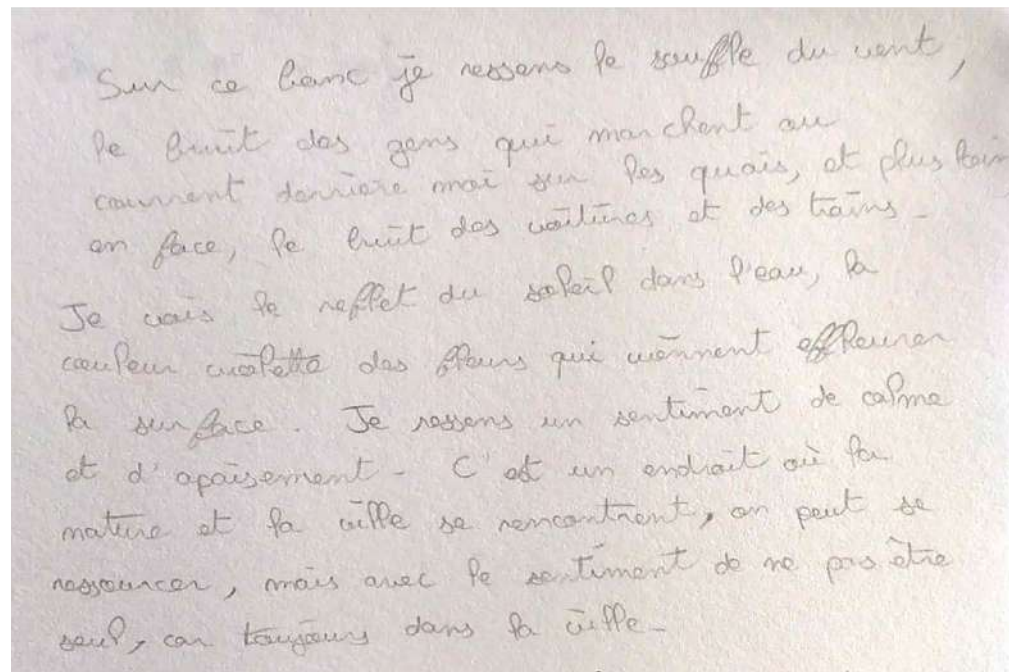 Sur ce banc je ressens le souffle du vent,
le bruit des gens qui marchent ou
courrent derrière moi sur les quais, et plus loin
en face, le bruit des voitures et des trains.
Je vois le reflet du soleil dans l'eau, la
couleur violette des fleurs qui viennent effleurer
la surface. Je ressens un sentiment de calme
et d'apaisement. C'est un endroit où la
nature et la ville se rencontrent, on peut se
ressourcer, mais avec le sentiment de ne pas être
seul, car toujours dans la ville.